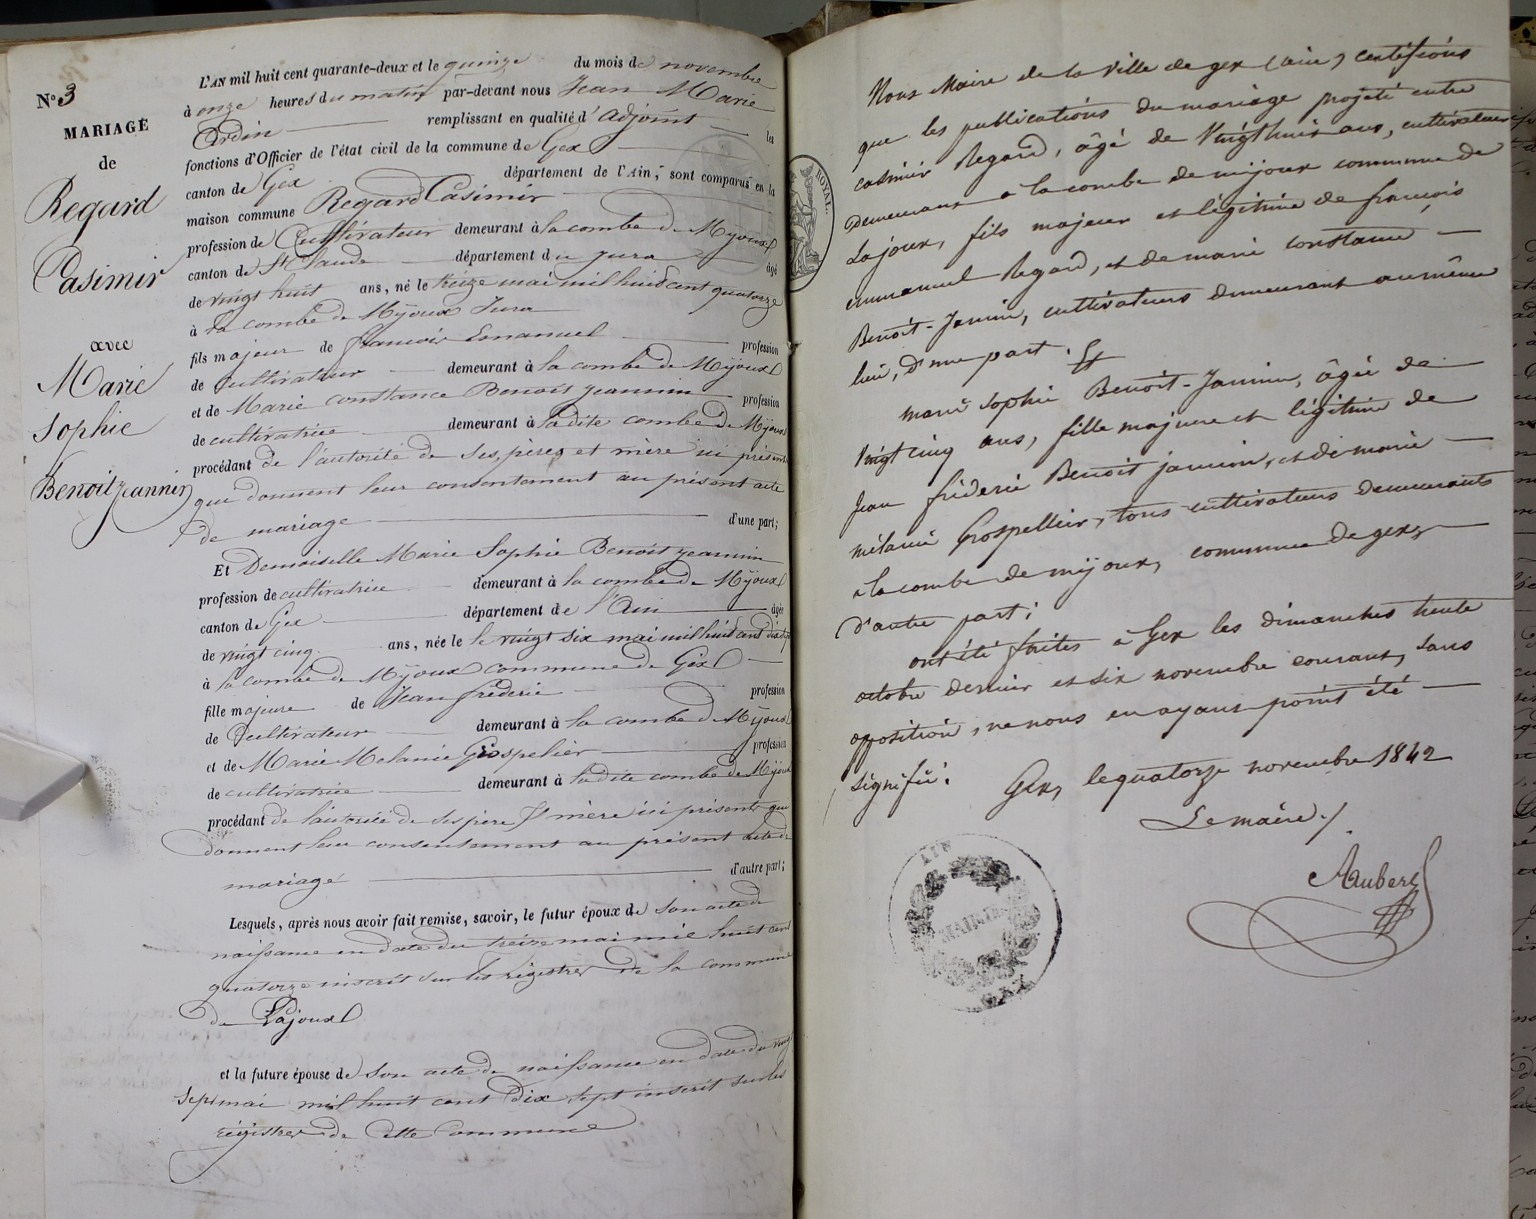 N° 3
MARIAGE
de
Regard
Casimir
avec
Marie
Sophie
Benoit jeannin
L'AN mil huit cent quarante-deux et le quinze du mois de novembre
à onze heures du matin par-devant nous Jean Marie
remplissant en qualité d'adjoint la
fonctions d'Officier de l'état civil de la commune de Gex
canton de Gex département de l'Ain, sont comparus en la
maison commune Regard Casimir
profession de Cultivateur demeurant à la combe de Mijoux
canton de St Claude département du jura âgé
de vingt huit ans, né le treize mai mil huit cent quatorze
à la combe de Mijoux Jura
fils majeur de francois Emanuel profession
de cultivateur demeurant à la combe de Mijoux
et de Marie constance Benoit jeannin profession
de cultivatrice demeurant à la dite combe de Mijoux
procédant de l'autorité de ses pères et mère ici présents
qui donnent leur consentement au présent acte
de mariage d'une part;
Et Demoiselle Marie Sophie Benoit jeannin
profession de cultivatrice demeurant à la combe de Mijoux
canton de Gex département de l'Ain âgée
de vingt cinq ans, née le le vingt six mai mil huit cent dix sept
à la combe de Mijoux commune de Gex
fille majeure de Jean fréderic profession
de Cultivateur demeurant à la combe de Mijoux
et de Marie Melanie Grospelier profession
de cultivatrice demeurant à la dite combe de Mijoux
procédant de l'autorité de ses pere & mère ici présents qui
donnent leur consentement au présent acte de
mariage d'autre part;
Lesquels, après nous avoir fait remise, savoir, le futur époux de son acte de
naissance en date du treize mai mil huit cent
quatorze inscrit sur les régistres de la commune
de Lajoux
et la future épouse de son acte de naissance en date du vingt
sept mai mil huit cent dix sept inscrit sur les
régistres de cette commune
ROYAL.
Nous Maire de la ville de gex (ain) certifions
que les publications du mariage projeté entre
casimir Regard, âgé de vingthuit ans, cultivateur
demeurant à la combe de mijoux commune de
Lajoux, fils majeur et légitime de françois
emmanuel Regard, et de marie constance
Benoit-Janin, cultivateurs demeurant au même
lieu, d'une part. Et
marie Sophie Benoit-Janin, âgée de
vingt cinq ans, fille majeure et légitime de
Jean fréderic Benoit janin, et de marie
mélanie Grospellier, tous cultivateurs demeurants
à la combe de mijoux, commune de gex,
d'autre part;
ont été faites à Gex les dimanches trente
octobre dernier et six novembre courant, sans
opposition, ne nous en ayant point été
signifié. Gex, le quatorze novembre 1842
Le maire./
Aubert
AIN
MAIRIE
GEX